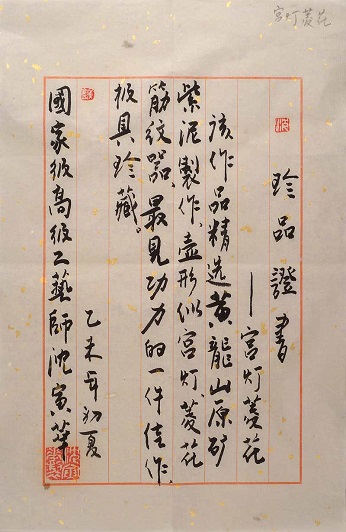 宫灯菱花
珍品證書
—宫灯菱花
該作品精选黄龍山原矿
紫泥製作、壶形似宫灯、菱花
筋纹器、最見功力的一件佳作、
极具珍藏。
乙未年初夏
國家级高级工藝師沈寅華